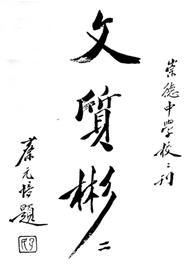 崇德中學校〻刊
文質彬〻
蔡元培題